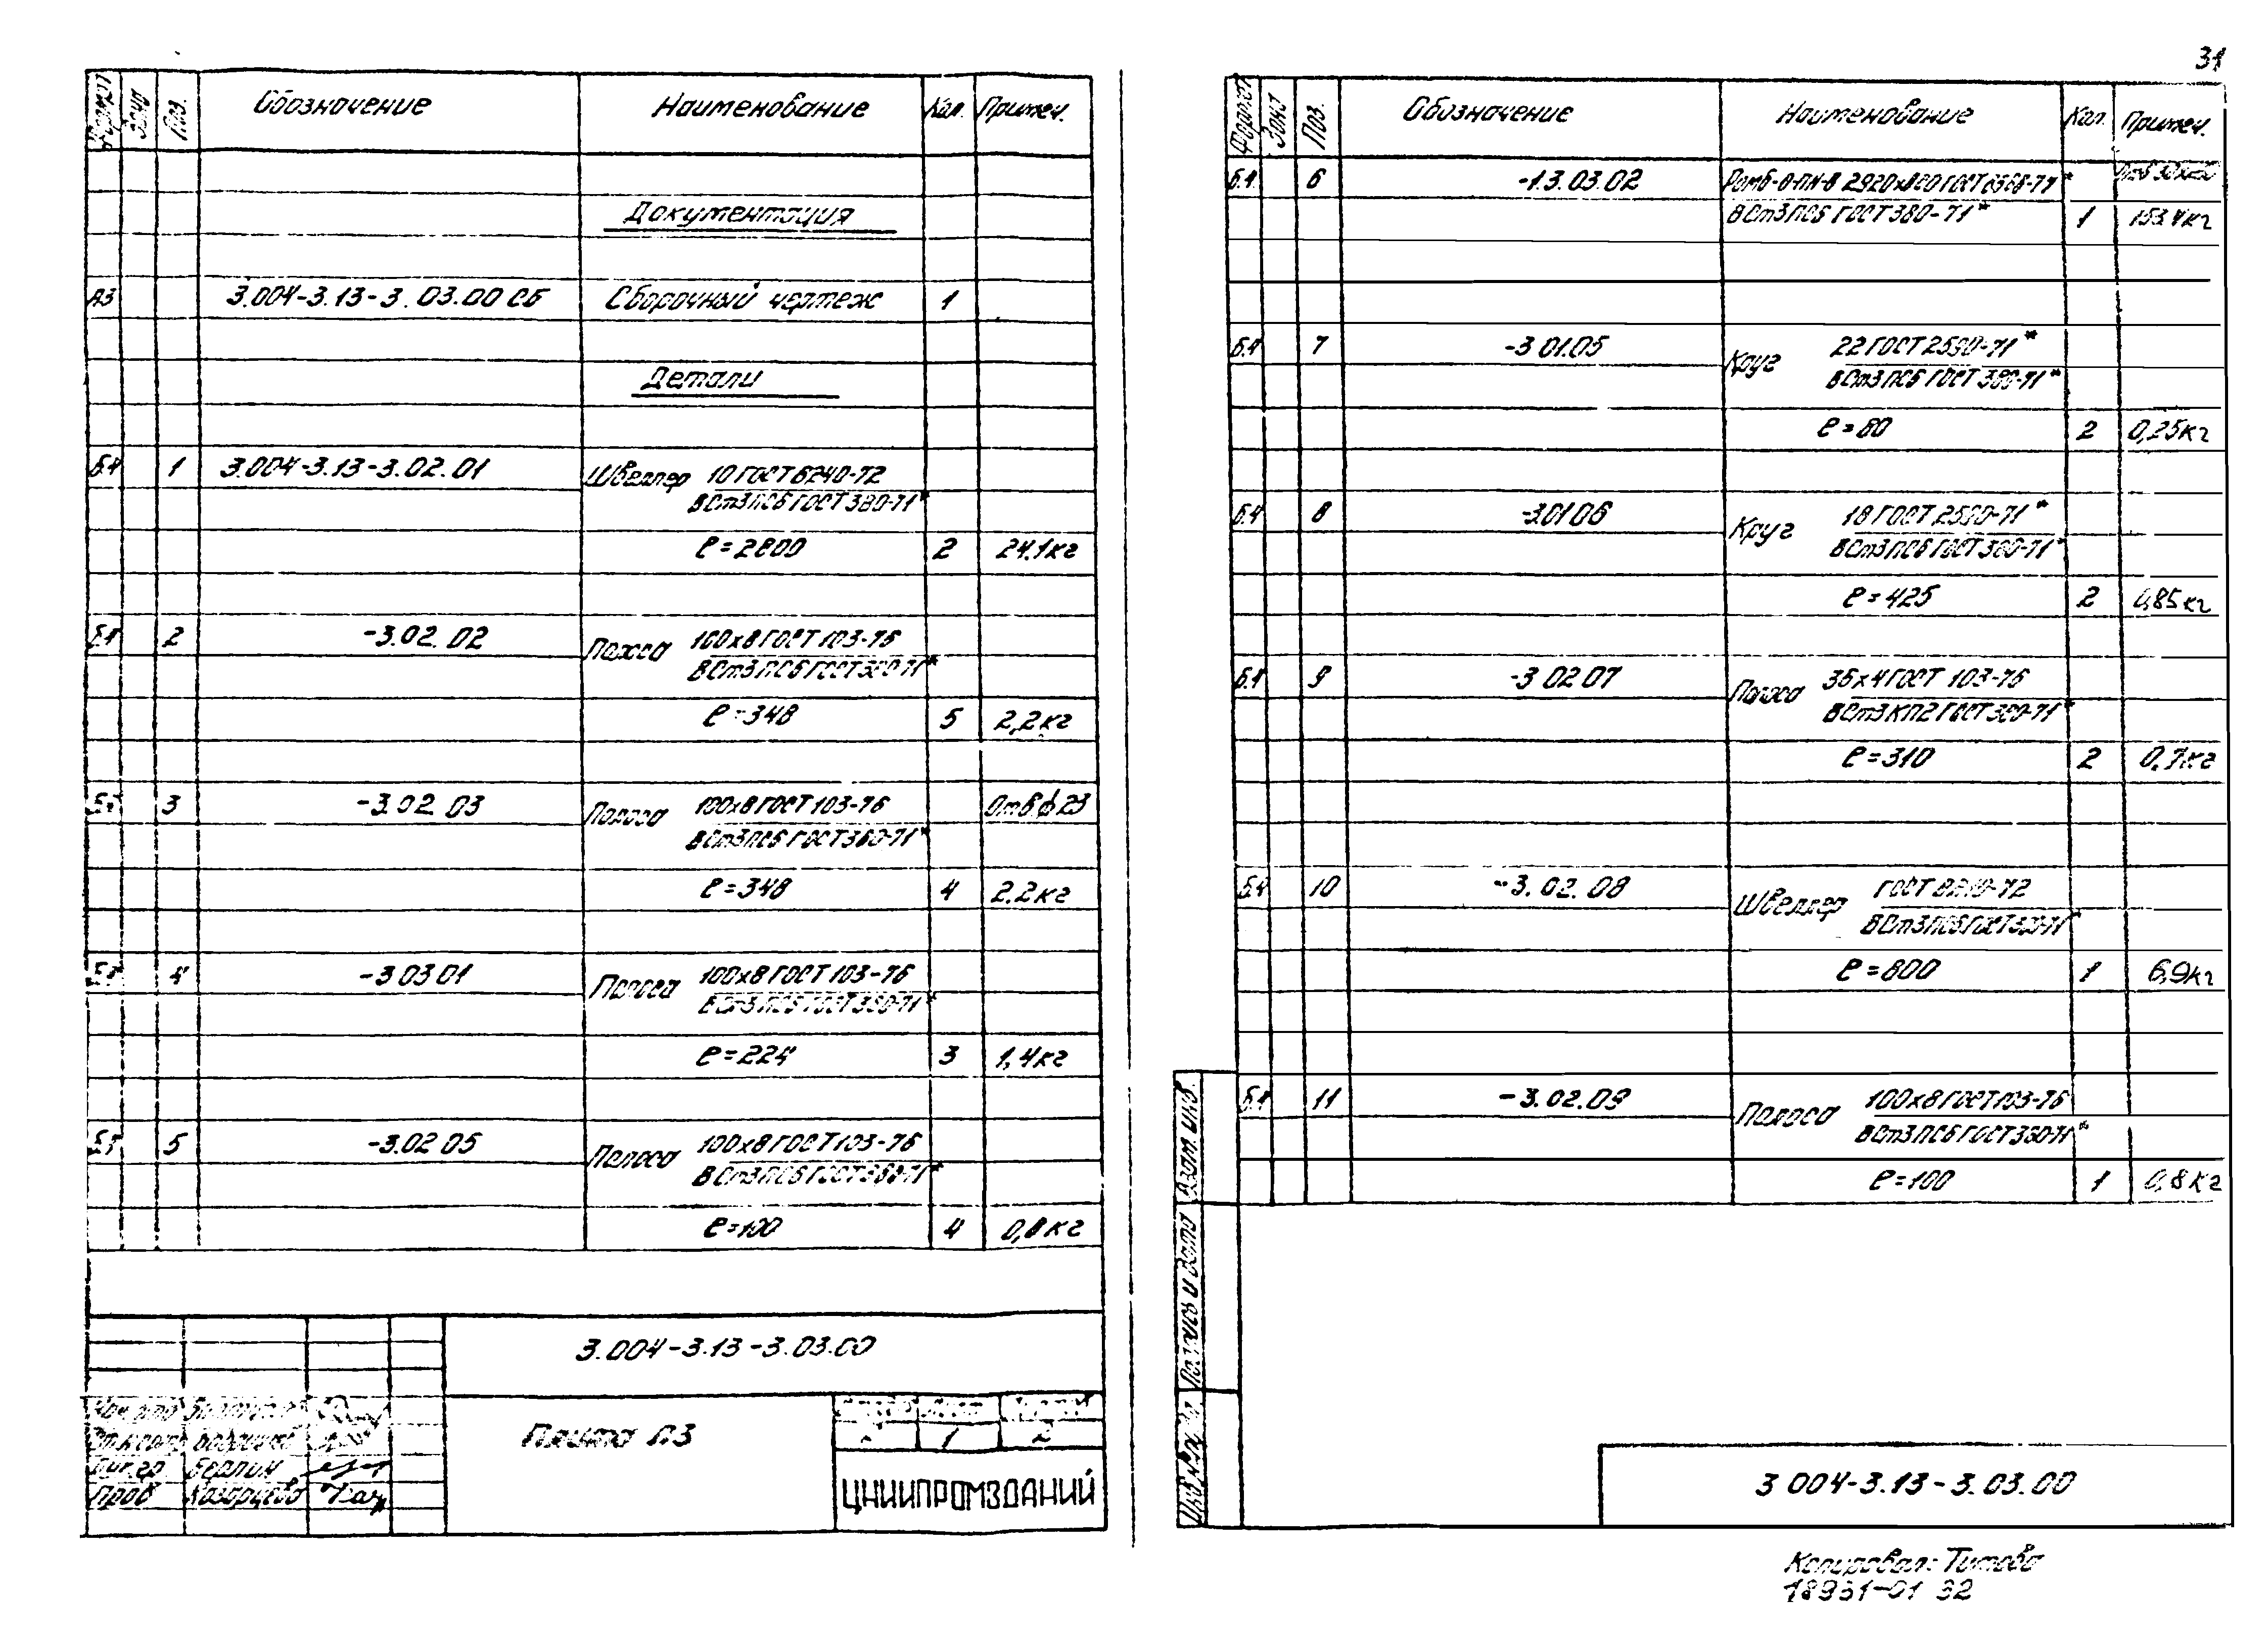 31
Формат Зона Поз. Обозначение Наименование Кол. Примеч.
Документация
А3 3.004-3.13-3.03.00 СБ Сборочный чертеж 1
Детали
Б.4 1 3.004-3.13-3.02.01 Швеллер 10 ГОСТ 8240-72
ВСт3ПС6 ГОСТ 380-71*
ℓ=2800 2 24.1кг
Б.4 2 -3.02.02 Полоса 100х8 ГОСТ 103-76
ВСт3ПС6 ГОСТ 380-71*
ℓ=348 5 2,2кг
Б.4 3 -3.02 03 Полоса 100х8 ГОСТ 103-76 Отв.ф23
ВСт3ПС6 ГОСТ 380-71*
ℓ=348 4 2.2кг
Б.4 4 -3 03 01 Полоса 100х8 ГОСТ 103-76
ВСт3ПС6 ГОСТ 380-71*
ℓ=224 3 1,4кг
Б.4 5 -3.02 05 Полоса 100х8 ГОСТ 103-76
ВСт3ПС6 ГОСТ 380-71*
ℓ=100 4 0,8кг
3.004-3.13-3.03.00
Плита П3
1 2
Берлин
Пров
ЦНИИПРОМЗДАНИЙ
Формат Зона Поз. Обозначение Наименование Кол. Примеч.
Б.4 6 -1.3.03.02 Ромб-О-ПН-8 2920х800 ГОСТ 8568-77*
ВСт3ПС6 ГОСТ 380-71* 1 153.4кг
Б.4 7 -3 01.05 Круг 22 ГОСТ 2590-71*
ВСт3ПС6 ГОСТ 380-71*
ℓ=80 2 0,25кг
Б.4 8 -3.01 06 Круг 18 ГОСТ 2590-71*
ВСт3ПС6 ГОСТ 380-71*
ℓ=425 2 0,85кг
Б.4 9 -3 02 07 Полоса 36х4 ГОСТ 103-76
ВСт3КП2 ГОСТ 380-71*
ℓ=310 2 0,7кг
Б.4 10 -3.02.08 Швеллер ГОСТ 8240-72
ВСт3ПС6 ГОСТ 380-71*
ℓ=800 1 6,9кг
Б.4 11 -3.02.09 Полоса 100х8 ГОСТ 103-76
ВСт3ПС6 ГОСТ 380-71*
ℓ=100 1 0,8кг
Взам. инв.
Подпись и дата
3 004-3.13-3.03.00
Копировал: Титова
18931-01 32